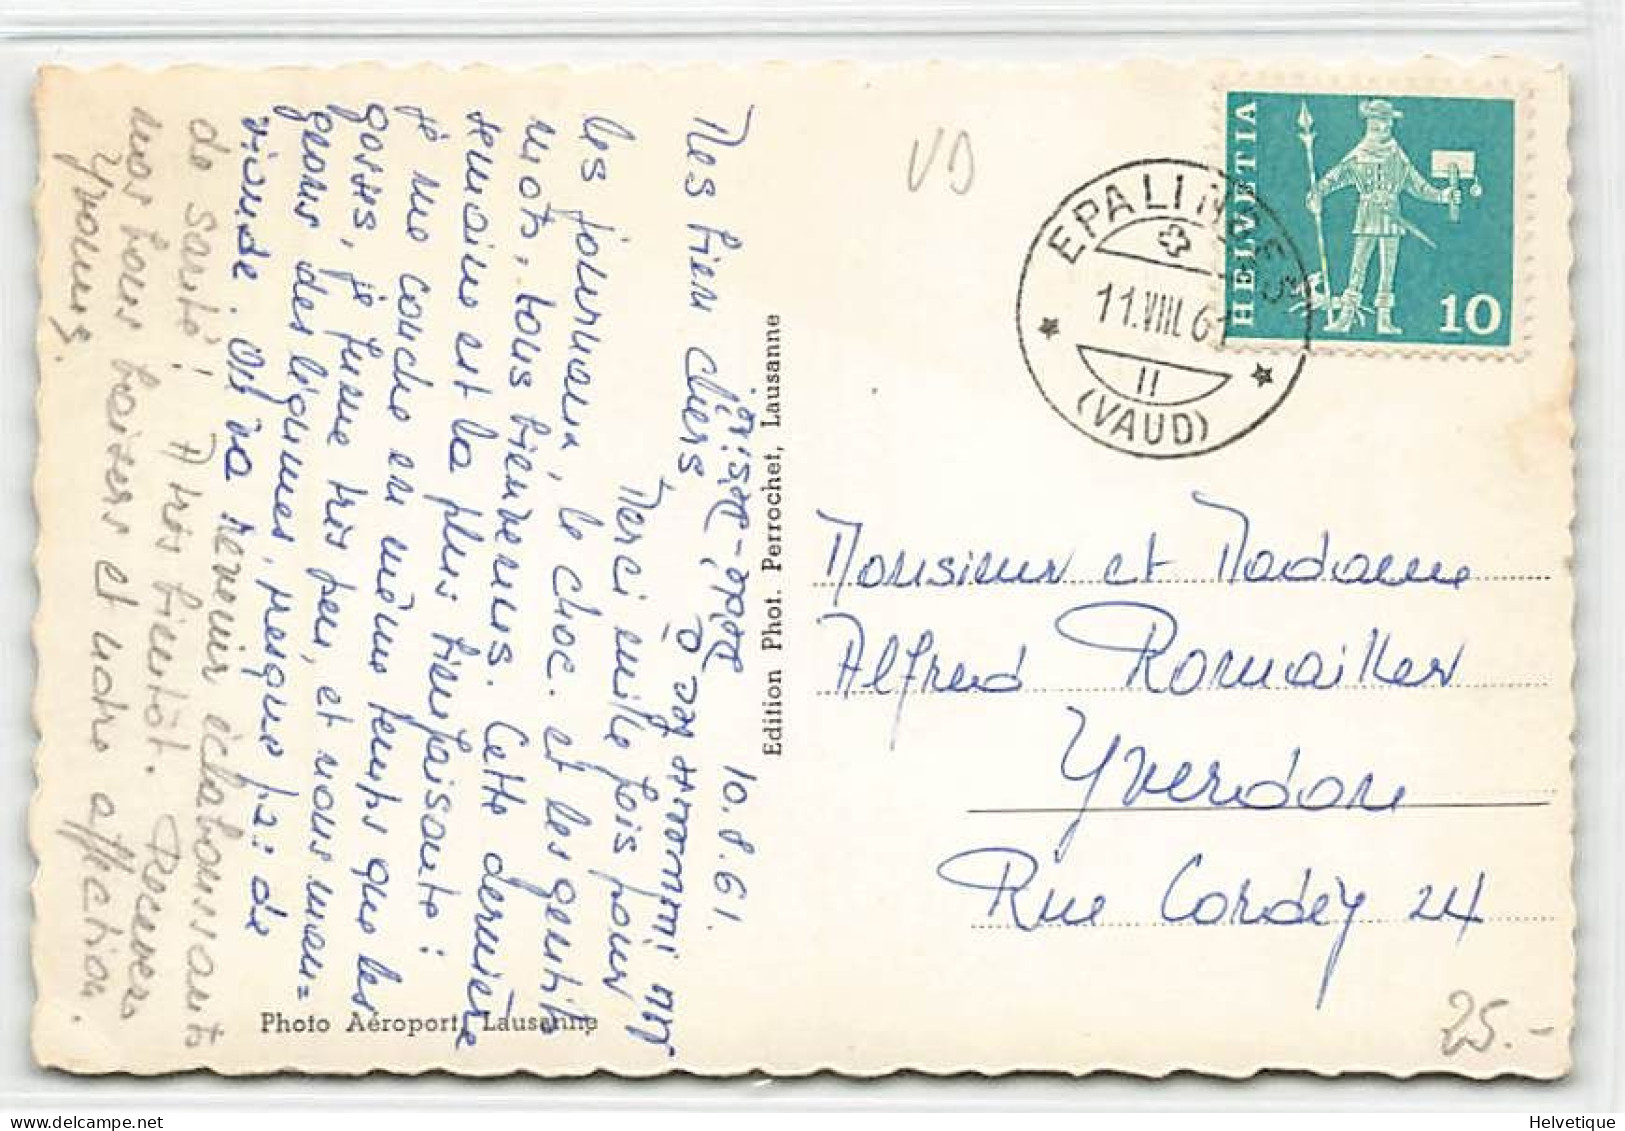 VD
HELVETIA
10
EPALINGES
11.VIII.61
11
(VAUD)
Monsieur et Madame
Alfred Romailler
Yverdon
Rue Cordey 24
25.-
Edition Phot. Perrochet, Lausanne
Photo Aéroport, Lausanne
10.8.61.
Mes bien chers,
Merci mille fois pour
les journaux, le choc. et les gentils
mots, tous bienvenus. Cette dernière
semaine est la plus bienfaisante:
je me couche en même temps que les
gosses, je fume très peu, et nous man=
geons des légumes, presque pas de
viande. On va revenir éclaboussants
de santé! A très bientôt. Recevez
nos bons baisers et notre affection.
Yvonne.
Helvetique